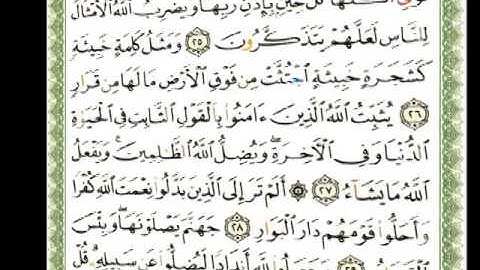 تُؤْتِي أُكُلَهَا كُلَّ حِينٍ بِإِذْنِ رَبِّهَا وَيَضْرِبُ اللَّهُ الْأَمْثَالَ
لِلنَّاسِ لَعَلَّهُمْ يَتَذَكَّرُونَ ٢٥ وَمَثَلُ كَلِمَةٍ خَبِيثَةٍ
كَشَجَرَةٍ خَبِيثَةٍ اجْتُثَّتْ مِن فَوْقِ الْأَرْضِ مَا لَهَا مِن قَرَارٍ
٢٦ يُثَبِّتُ اللَّهُ الَّذِينَ ءَامَنُوا بِالْقَوْلِ الثَّابِتِ فِي الْحَيَوٰةِ
الدُّنْيَا وَفِي الْآخِرَةِ ۖ وَيُضِلُّ اللَّهُ الظَّٰلِمِينَ ۚ وَيَفْعَلُ
اللَّهُ مَا يَشَاءُ ٢٧ ۞ أَلَمْ تَرَ إِلَى الَّذِينَ بَدَّلُوا نِعْمَتَ اللَّهِ كُفْرًا
وَأَحَلُّوا قَوْمَهُمْ دَارَ الْبَوَارِ ٢٨ جَهَنَّمَ يَصْلَوْنَهَا ۖ وَبِئْسَ
الْقَرَارُ ٢٩ وَجَعَلُوا لِلَّهِ أَندَادًا لِّيُضِلُّوا عَن سَبِيلِهِ ۗ قُلْ